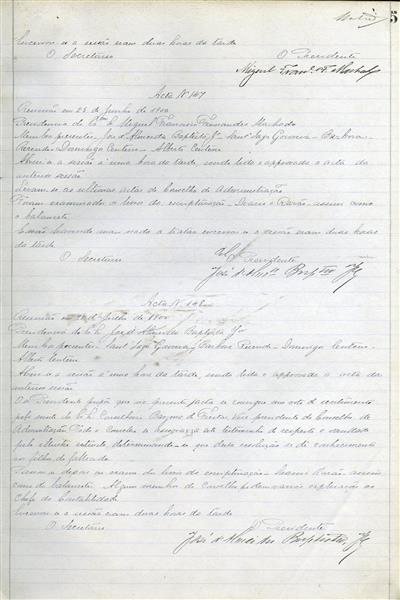 5
Encerrou-se a sessão eram duas horas da tarde
O Secretario O Presidente
Miguel Fran. F. Machado
Acta Nº 147
Reunião em 28 de Junho de 1900
Presidencia do Exmo Sr. Miguel Francisco Fernandes Machado
Membros presentes, José d'Almeida Baptista Jr
Rezende Domingo Centeno - Alberto Centeno
Abriu-se a sessão á uma hora da tarde, sendo lida e approvada a acta da
anterior sessão
Leram-se as ultimas actas do Conselho de Administração
Foram examinados os livros de escripturação - Diario e Razão - assim como
o balancete
E não havendo mais nada a tratar encerrou-se a sessão eram duas horas
da tarde
O Secretario O Presidente
José d'Almeida Baptista Jr
Acta Nº 148
Reunião em de Julho de 1900
Presidencia do José d'Almeida Baptista Jr
Membros presentes, Rezende - Domingo Centeno -
Alberto Centeno
Abriu-se a sessão á uma hora da tarde, sendo lida e approvada a acta da
anterior sessão
O Sr Presidente que na presente acta se consigne um voto de sentimento
pela morte do Conselheiro de Freitas, Vice presidente do Conselho de
Administração
pelo illustre extincto, determinando-se que desta resolução se dê conhecimento
ao filho do fallecido
Passou-se depois ao exame dos livros de escripturação - Diario Razão assim
como do balancete. Alguns membros do Conselho pediram varias explicações ao
Chefe da Contabilidade
Encerrou-se a sessão eram duas horas da tarde
O Secretario O Presidente
José d'Almeida Baptista Jr